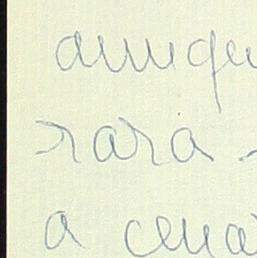 amique
rara -
a cena